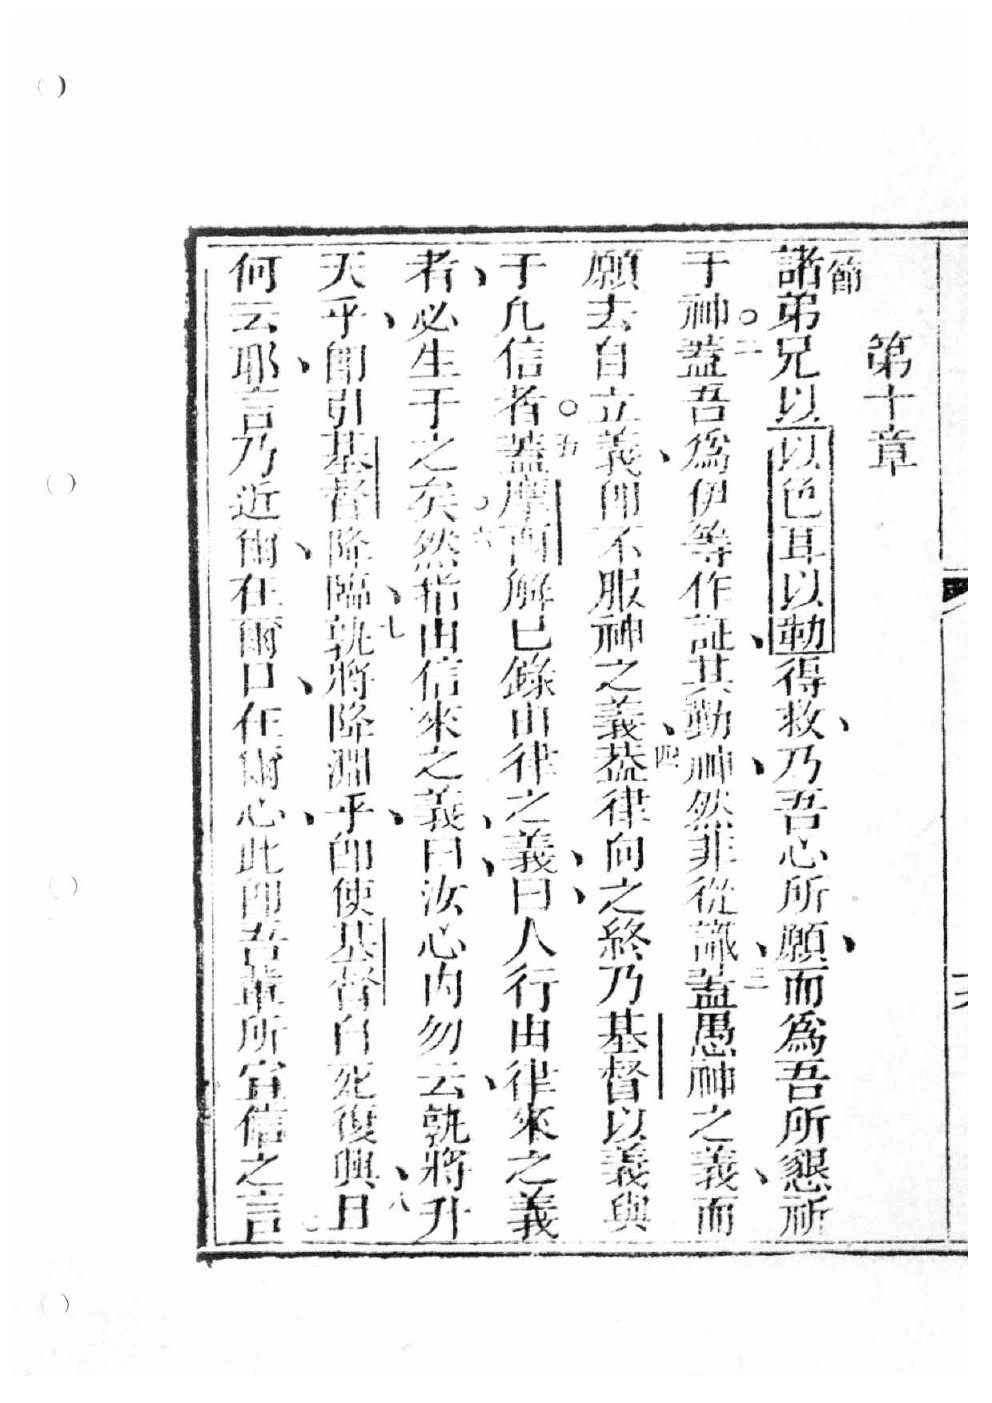 第十章
一節諸弟兄以以色耳以勒得救、乃吾心所願、而爲吾所懇祈
于神。二蓋吾爲伊等作証、其勤神、然非從識、三蓋愚神之義、而
願去自立義、卽不服神之義、四葢律向之終乃基督以義與
于凡信者。五蓋摩西解已錄由律之義、曰、人行由律來之義
者、必生于之矣。六然指由信來之義、曰、汝心內勿云、孰將升
天乎、卽引基督降臨、七孰將降淵乎、卽使基督自死復興、八且
何云耶、言乃近爾、在爾口、在爾心、此卽吾輩所宣信之言